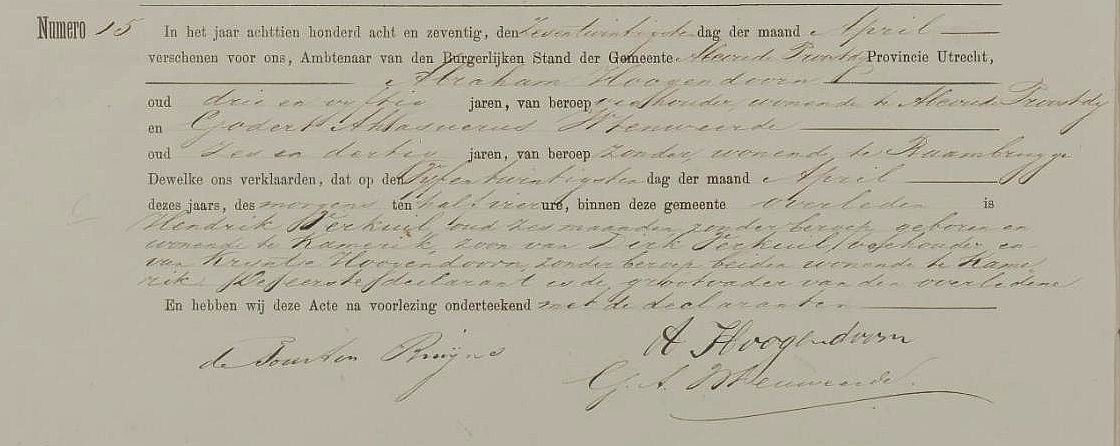 Numero 15 In het jaar achttien honderd acht en zeventig, den Zeventwintigsten dag der maand April
verschenen voor ons, Ambtenaar van den Burgerlijken Stand der Gemeente Abcoude Proostdij Provincie Utrecht,
Abraham Hoogendoorn
oud drie en vijftig jaren, van beroep veehouder, wonende te Abcoude Proostdij
en Godert Ahasuerus
oud Zes en dertig jaren, van beroep zonder, wonende te Baambrugge
Dewelke ons verklaarden, dat op den Vijfentwintigsten dag der maand April
dezes jaars, des morgens ten half vier ure, binnen deze gemeente overleden is
Hendrik Verkuil, oud zes maanden, zonder beroep, geboren en
wonende te Kamerik, zoon van Dirk Verkuil, veehouder, en
van Hoogendoorn, zonder beroep beiden wonende te Kame-
rik. De eerste declarant is de grootvader van den overledene
En hebben wij deze Acte na voorlezing onderteekend met de declaranten
A Hoogendoorn
G. A.